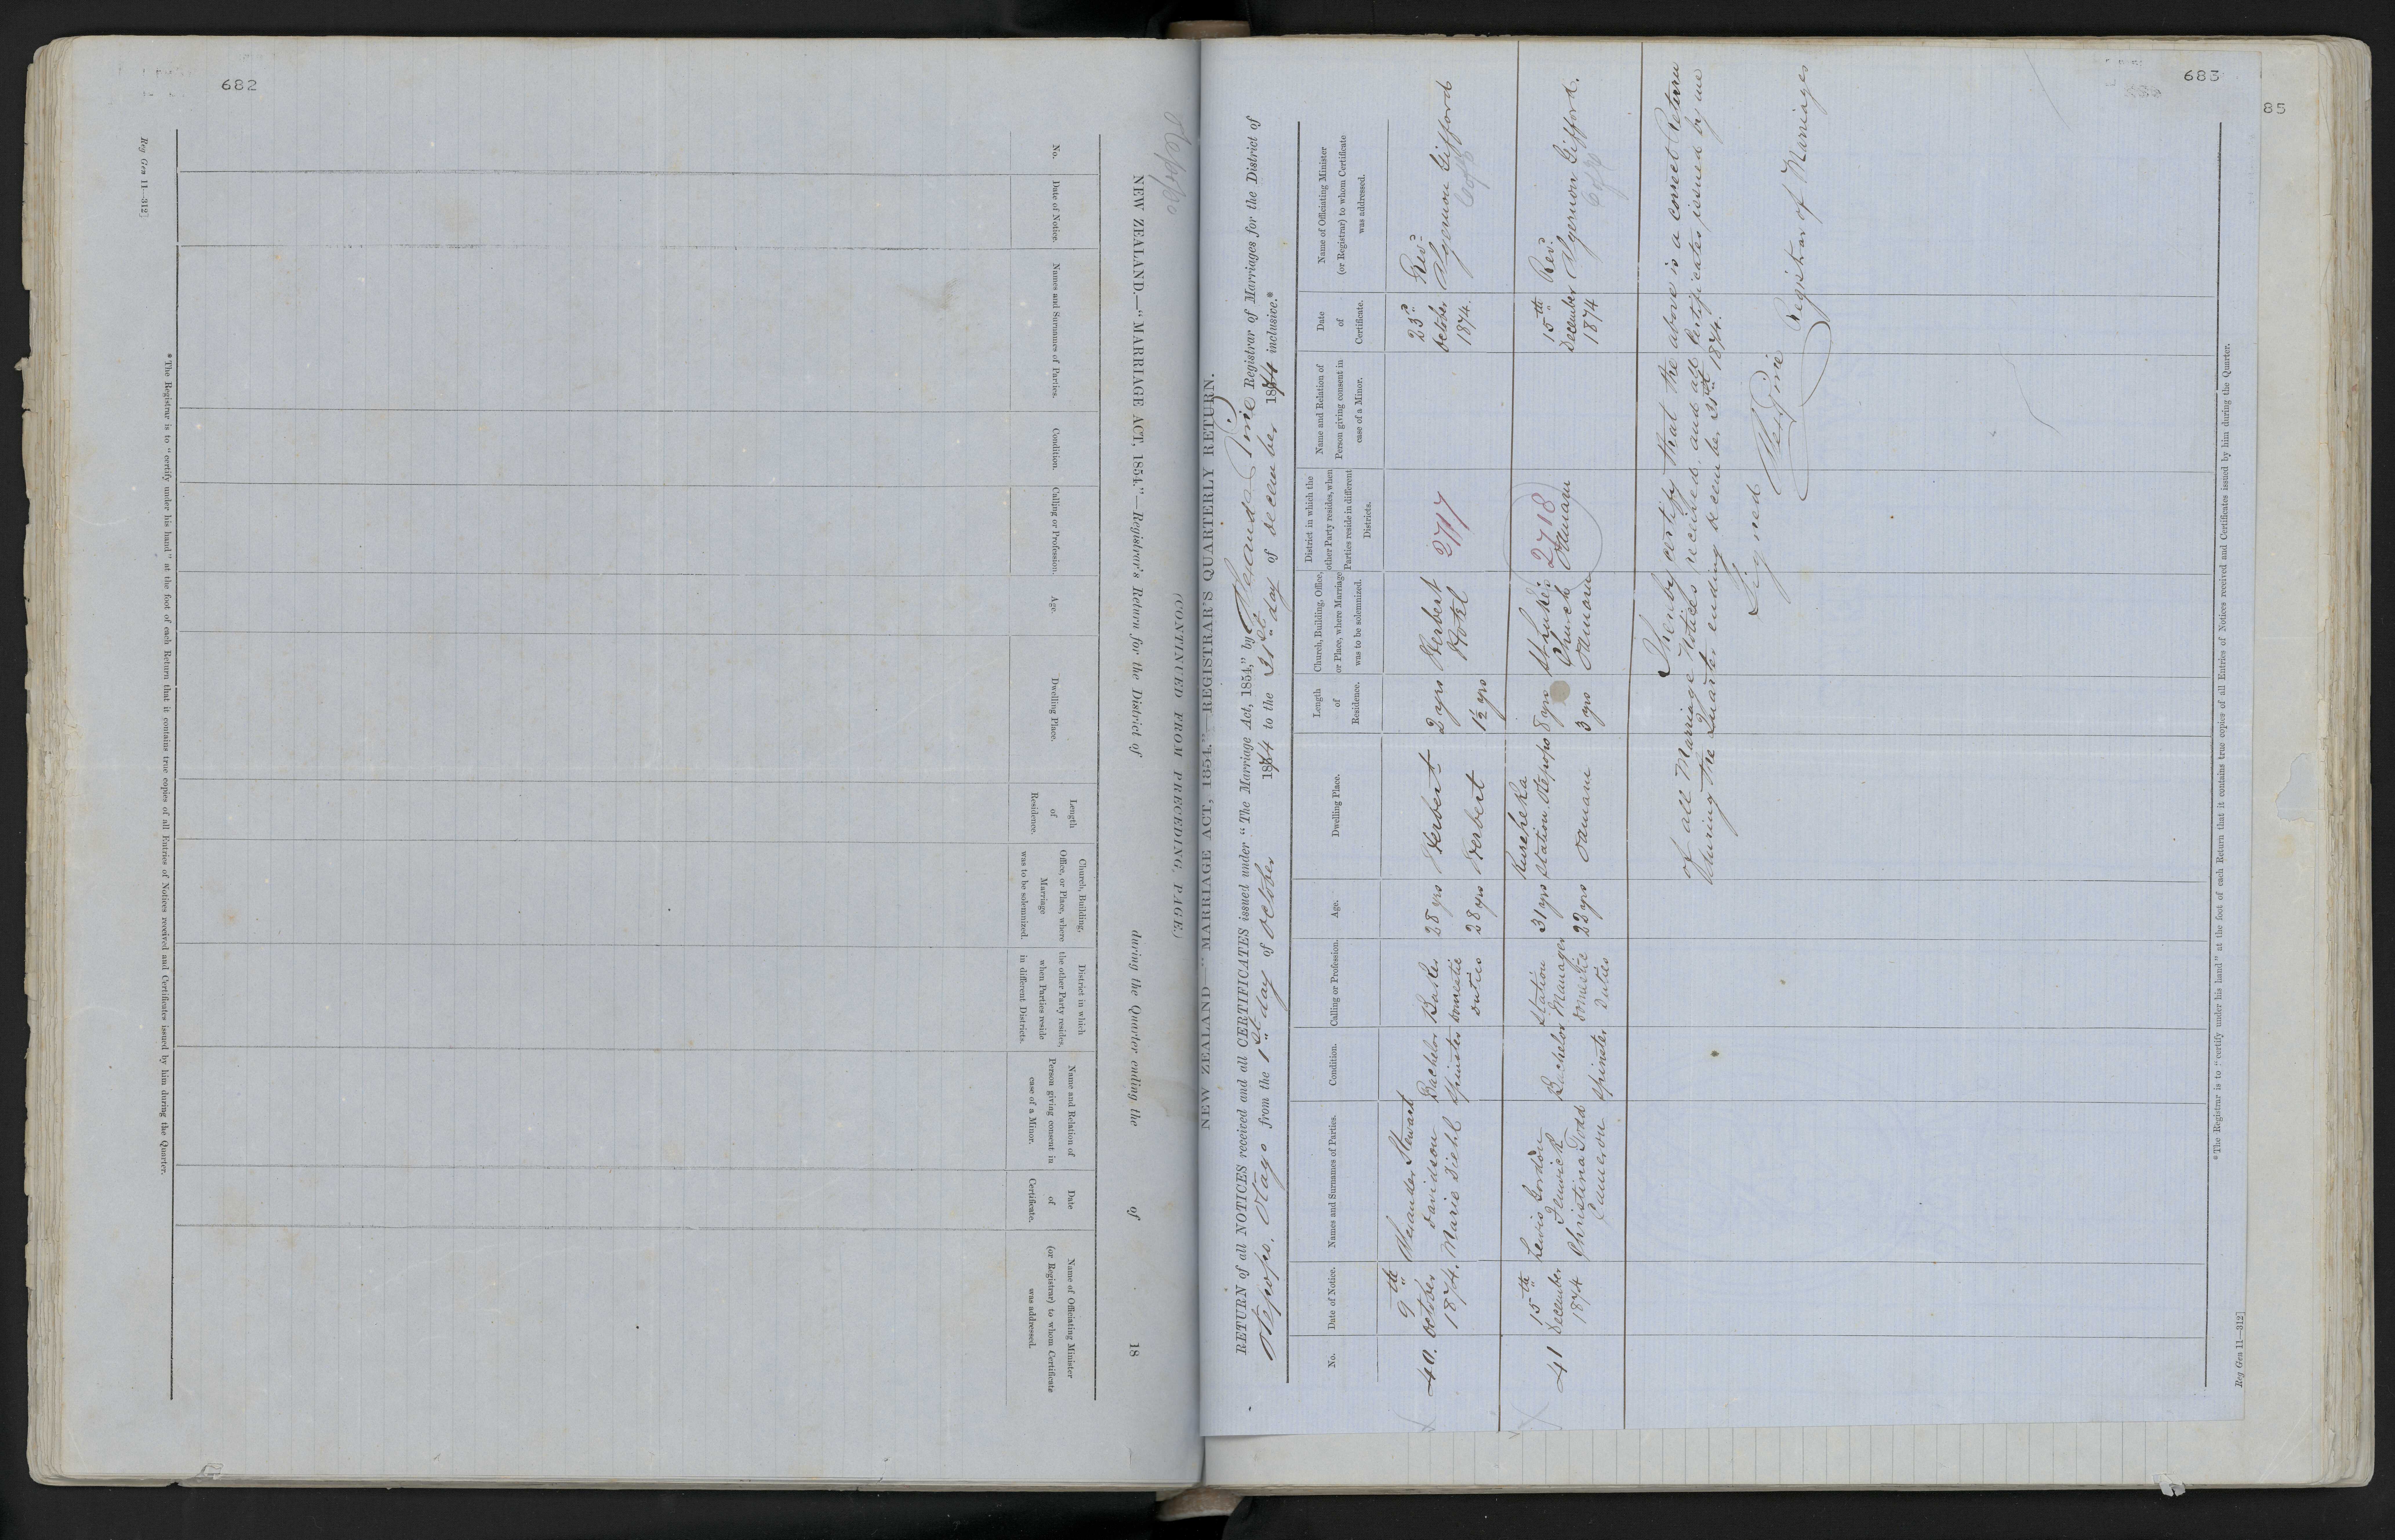 682
Reg Gen 11—312]
NEW ZEALAND.—"MARRIAGE ACT, 1854."—Registrar's Return for the District of during the Quarter ending the of 18
(CONTINUED FROM PRECEDING PAGE.)
No.
Date of Notice.
Names and Surnames of Parties.
Condition.
Calling or Profession.
Age.
Dwelling Place.
Length
of
Residence.
Church, Building,
Office, or Place, where
Marriage
was to be solemnized.
District in which
the other Party resides,
when Parties reside
in different Districts.
Name and Relation of
Person giving consent in
case of a Minor.
Date
of
Certificate.
Name of Officiating Minister
(or Registrar) to whom Certificate
was addressed.
*The Registrar is to "certify under his hand" at the foot of each Return that it contains true copies of all Entries of Notices received and Certificates issued by him during the Quarter.
Otepopo
683
85
NEW ZEALAND—"MARRIAGE ACT, 1854."—REGISTRAR'S QUARTERLY RETURN.
RETURN of all NOTICES received and all CERTIFICATES issued under "The Marriage Act, 1854," by Alexander Pirie Registrar of Marriages for the District of
Otepopo. Otago from the 1st day of October 1874 to the 31st day of December 1874 inclusive.*
No.
Date of Notice.
Names and Surnames of Parties.
Condition.
Calling or Profession.
Age.
Dwelling Place.
Length
of
Residence.
Church, Building, Office,
or Place, where Marriage
was to be solemnized.
District in which the
other Party resides, when
Parties reside in different
Districts.
Name and Relation of
Person giving consent in
case of a Minor.
Date
of
Certificate.
Name of Officiating Minister
(or Registrar) to whom Certificate
was addressed.
40.
9th
October
1874.
Alexander Stewart
Davidson
Marie Diehl
Bachelor
Spinster
Baker
Domestic
Duties
28 yrs
28 yrs
Herbert
Herbert
2 yrs
1½ yrs
Herbert
Hotel
2717
23rd
October
1874.
Revd
Algernon Gifford
CofE
41
15th
December
1874
Lewis Gordon
Fenwick
Christina Todd
Cameron
Bachelor
Spinster
Station
Manager
Domestic
Duties
31 yrs
22 yrs
Kureheka
Station Otepopo
Oamaru
8 yrs
3 yrs
St Luke's
Church
Oamaru
2718
Oamaru
15th
December
1874
Revd
Algernon Gifford.
CofE
I hereby certify that the above is a correct Return
of all Marriage Notices received, and all Certificates issued by me
during the Quarter ending December 31st 1874.
Signed
Alex Pirie
Registrar of Marriages
*The Registrar is to "certify under his hand" at the foot of each Return that it contains true copies of all Entries of Notices received and Certificates issued by him during the Quarter.
Reg Gen 11—312]